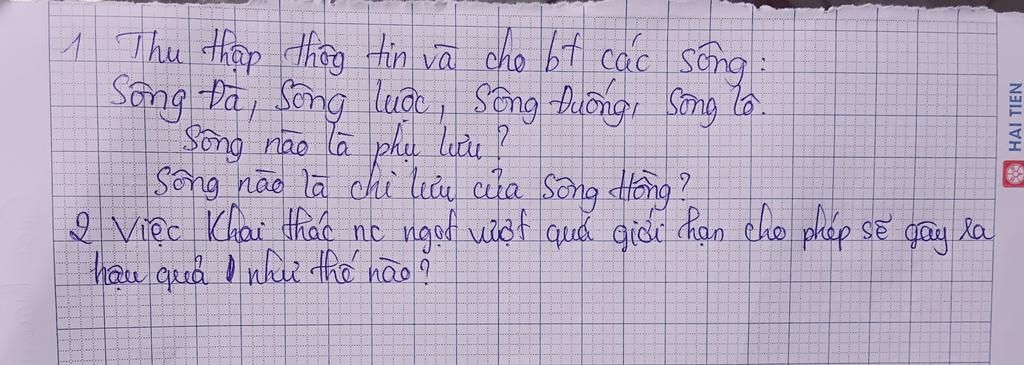 1 Thu thập thôg tin và cho bt các sông:
Sông Đà, Sông luộc, Sông Đuống, Sông lô.
Sông nào là phụ lưu?
Sông nào là chi lưu của Sông Hồng?
2 Việc Khai thác nc ngọt vượt quá giới hạn cho phép sẽ gây ra
hậu quả như thế nào?
HAI TIEN